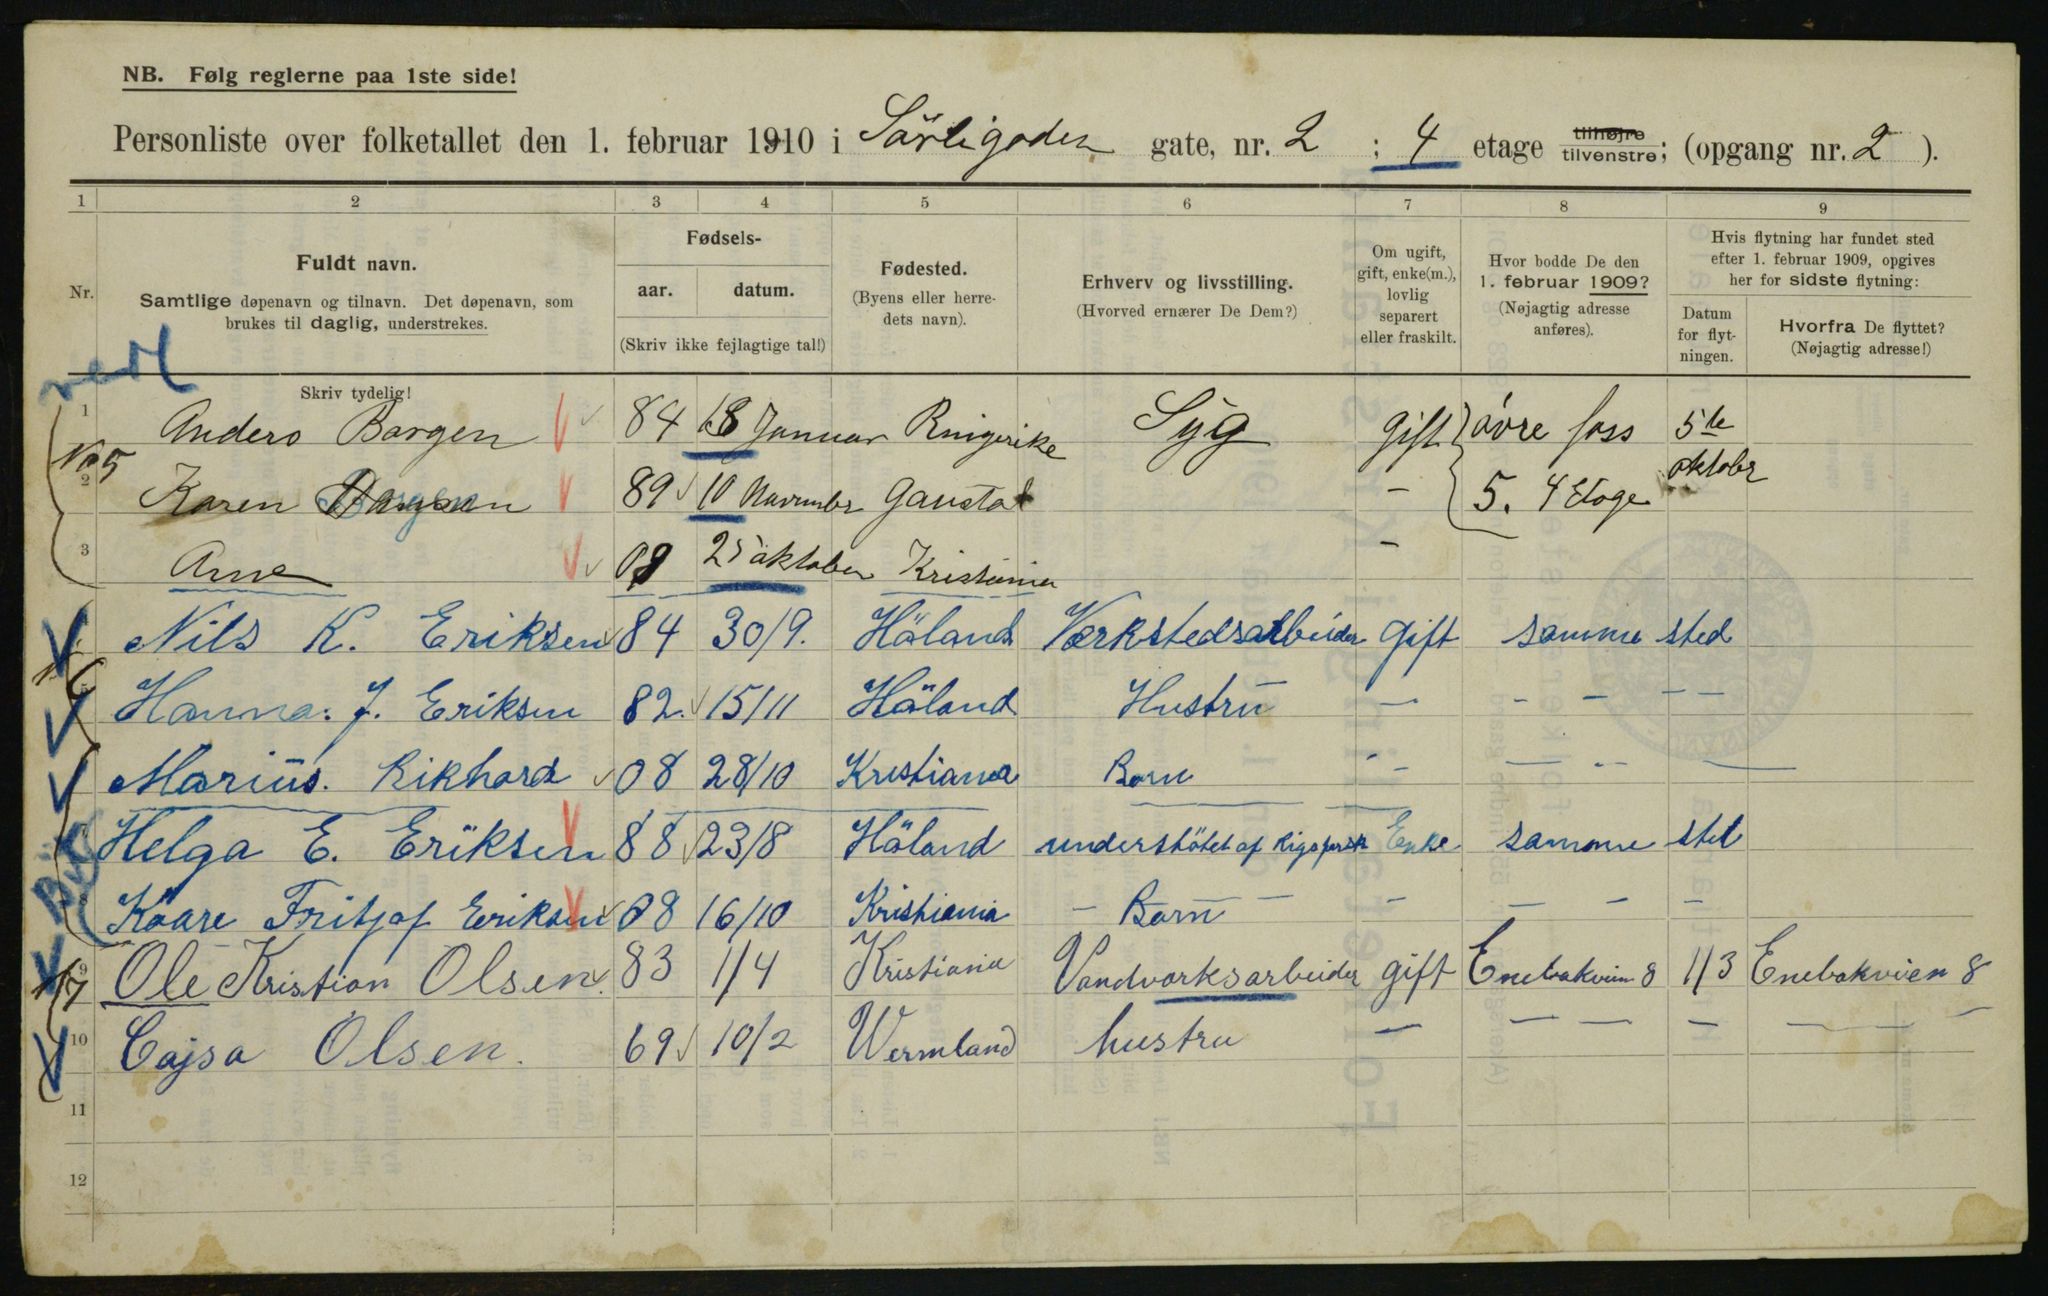 NB. Følg reglerne paa 1ste side!
Personliste over folketallet den 1. februar 1910 i Sörligaden gate, nr. 2 ; 4 etage tilhøjre tilvenstre; (opgang nr. 2 ).
1 2 3 4 5 6 7 8 9
Nr.
Fuldt navn.
Samtlige døpenavn og tilnavn. Det døpenavn, som
brukes til daglig, understrekes.
Skriv tydelig!
Fødsels-
aar. datum.
(Skriv ikke fejlagtige tal!)
Fødested.
(Byens eller herre-
dets navn).
Erhverv og livsstilling.
(Hvorved ernærer De Dem?)
Om ugift,
gift, enke(m.),
lovlig
separert
eller fraskilt.
Hvor bodde De den
1. februar 1909?
(Nøjagtig adresse
anføres).
Hvis flytning har fundet sted
efter 1. februar 1909, opgives
her for sidste flytning:
Datum
for flyt-
ningen.
Hvorfra De flyttet?
(Nøjagtig adresse!)
1 Anders Borgen 84 18 Januar Ringerike Syg gift övre foss 5te
No 5
2 Karen Borgen 89 10 November Gaustad - 5. 4 Etage oktober
3 Arne 08 25 oktober Kristiania -
Nils K. Eriksen 84 30/9. Höland Værkstedsarbeider gift samme sted
Hanna. J. Eriksen 82. 15/11 Höland Hustru - - - - -
Marius. Rikhard 08 28/10 Kristiania Barn - - - - -
Helga E. Eriksen 88 23/8 Höland understötet af Enke samme sted
Kaare Fritjof Eriksen 08 16/10 Kristiania - Barn - - - - -
9 Ole Kristian Olsen. 83 1/4 Kristiania Vandværksarbeider gift Enebakveien 8 1/3 Enebakveien 8
10 Cajsa Olsen. 69 10/2 Wermland hustru - - - - - -
11
12